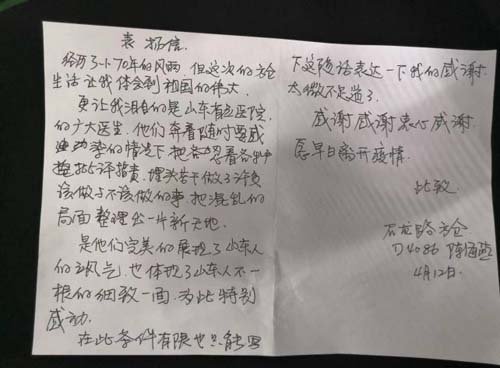 表扬信
经历了小70年的风雨,但这次的方仓
生活让我体会到祖国的伟大
更让我泪目的是山东省立医院
的广大医生.他们奔着随时要感
染的情况下把各忍着各种
抱怨指责.埋头苦干做了许多
该做与不该做的事.把混乱的
局面整理出一片新天地.
是他们完美的展现了山东人
的风气,也体现了山东人不一
般的细致一面,为此特别
感动.
在此条件有限也只能写
下这段话表达一下我的感谢
太微不足道了.
感谢感谢衷心感谢
愿早日离开疫情.
此致
石龙路方仓
D4086 陈
4月12日.